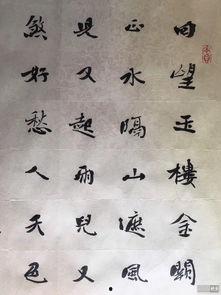 回望玉樓金闕
正水隔山遮風
兒又起雨兒又
煞好愁人天色